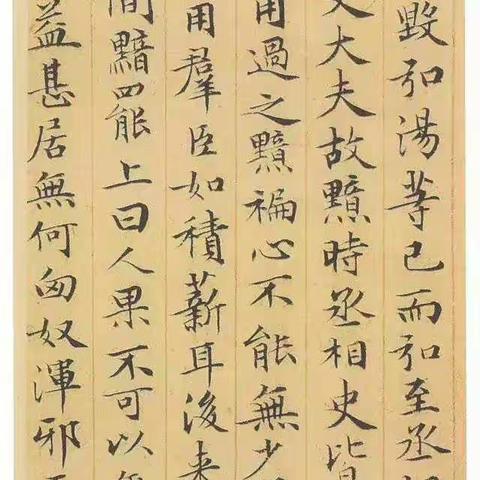 毀弘湯等已而弘至丞
史大夫故黯時丞相史皆
用過之黯褊心不能無少
用羣臣如積薪耳後来
間黯罷上曰人果不可以
益甚居無何匈奴渾邪